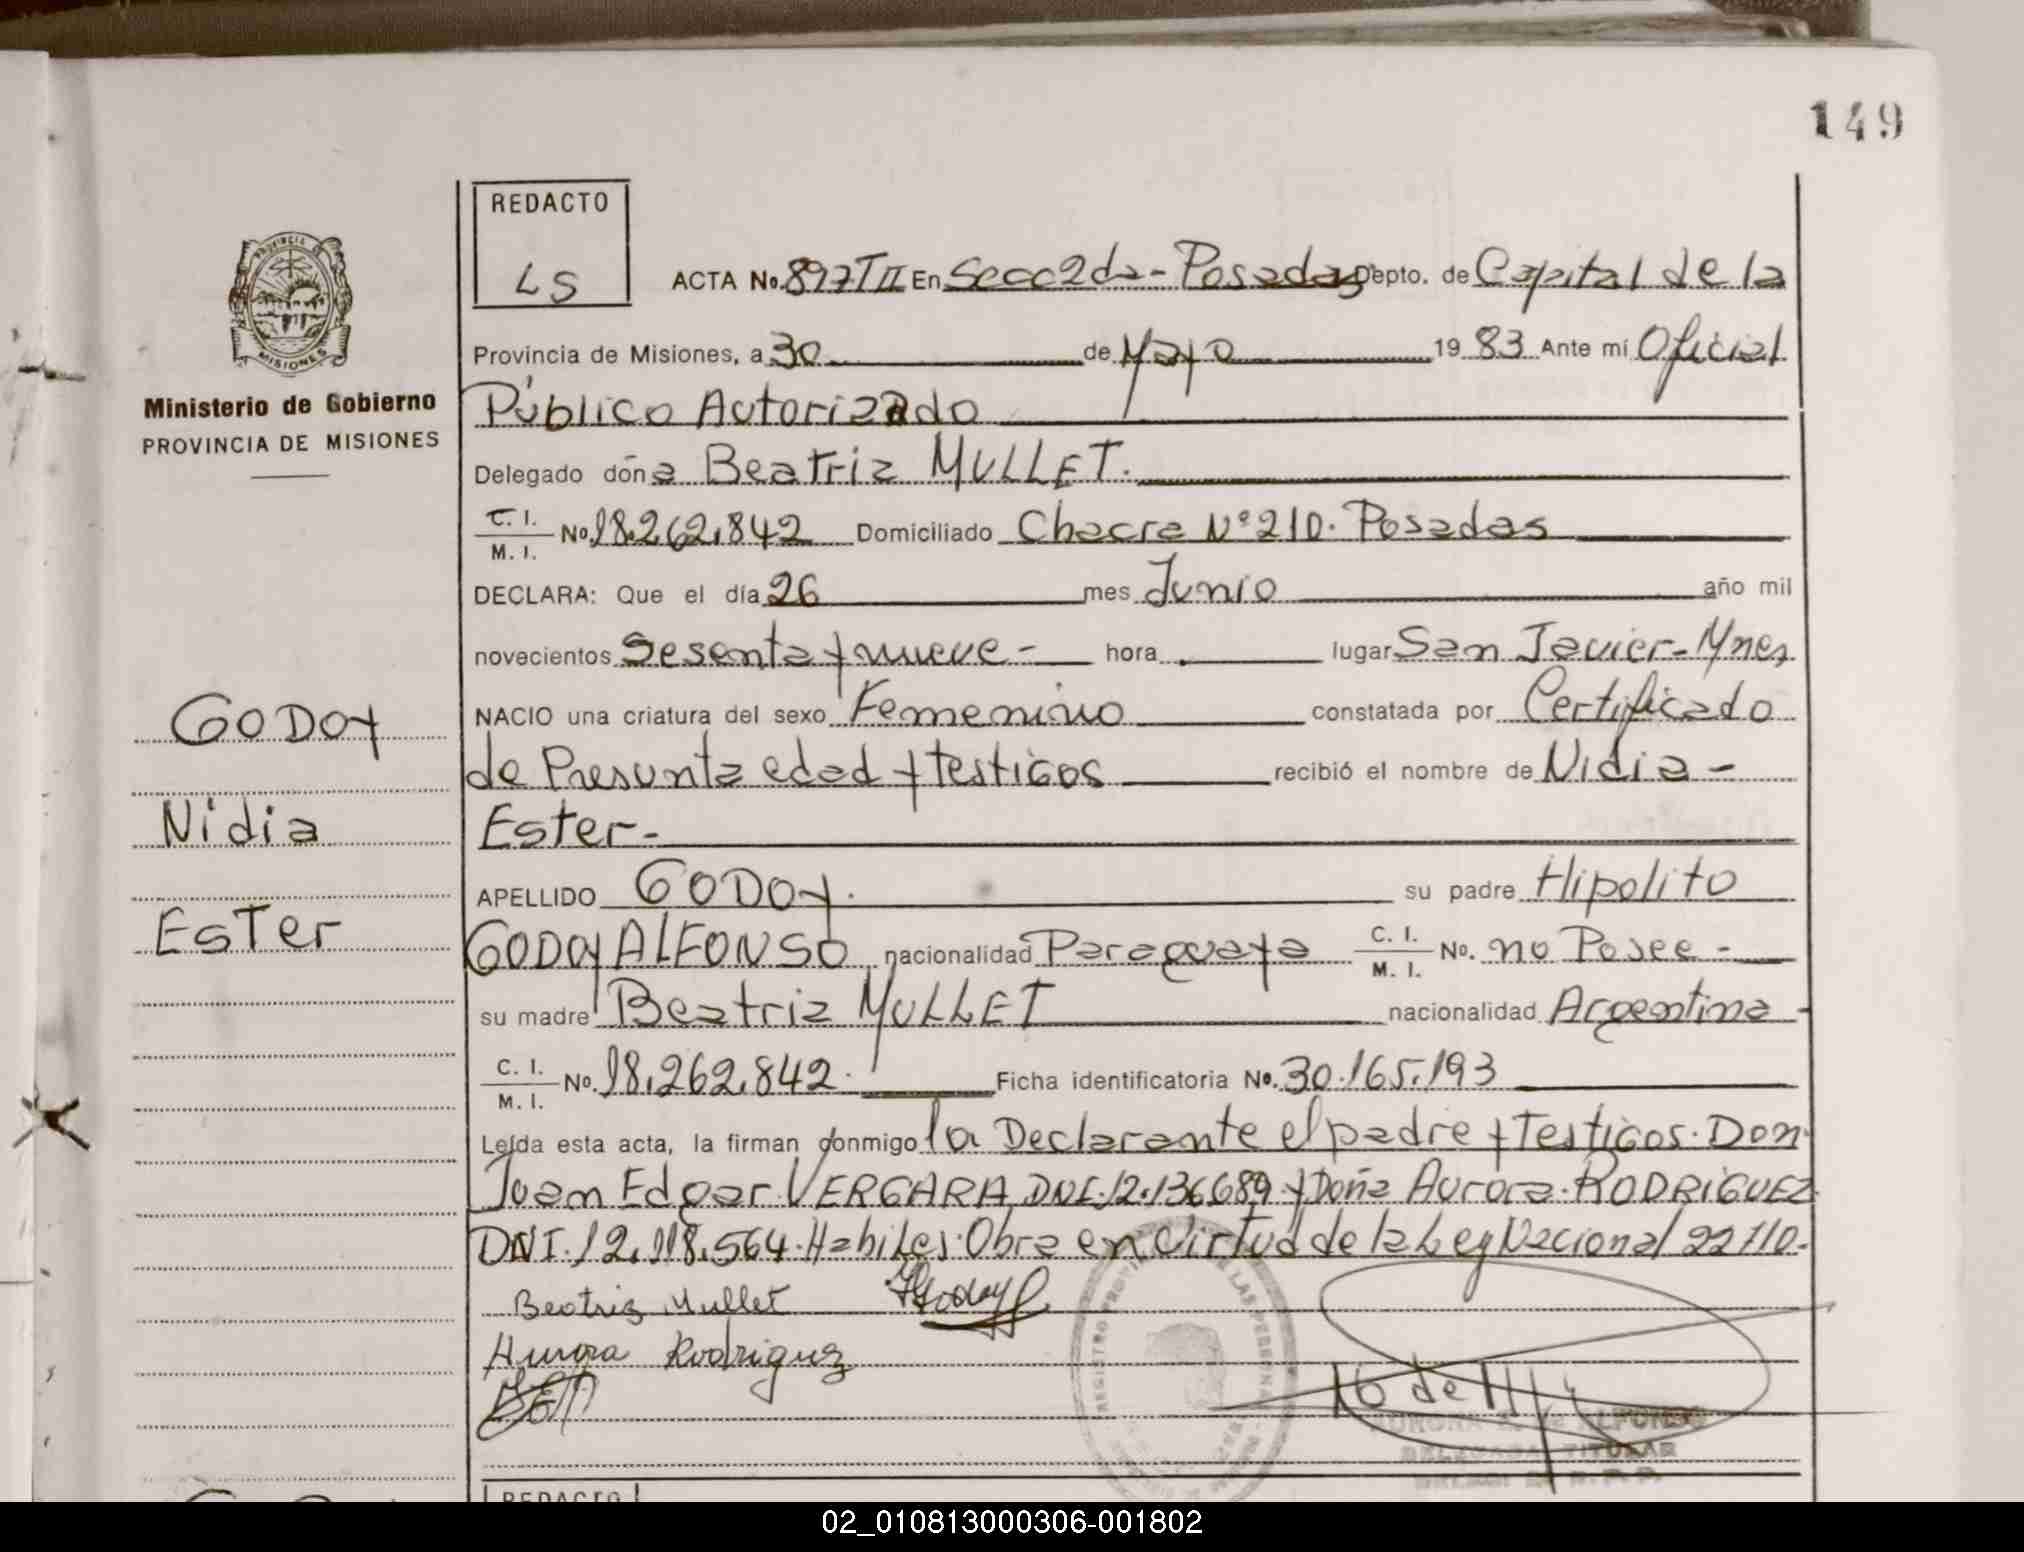 149
REDACTO
LS
ACTA No. 897 T II En Secc 2da - Posadas Depto. de Capital de la
Provincia de Misiones, a 30 de Mayo 1983 Ante mí Oficial
Ministerio de Gobierno
PROVINCIA DE MISIONES
Público Autorizado
Delegado doña Beatriz MULLET.
C. I. / M. I. No. 18.262.842 Domiciliado Chacra Nº 210. Posadas
DECLARA: Que el día 26 mes Junio año mil
novecientos Sesenta y nueve - hora lugar San Javier - Mnes
NACIO una criatura del sexo Femenino constatada por Certificado
de Presunta edad y testigos recibió el nombre de Nidia -
Ester -
APELLIDO GODOY. su padre Hipolito
GODOY ALFONSO nacionalidad Paraguaya C. I. / M. I. No. no Posee -
su madre Beatriz MULLET nacionalidad Argentina -
C. I. / M. I. No. 18.262.842. Ficha identificatoria No. 30.165.193
Leída esta acta, la firman conmigo la Declarante el padre y Testigos. Don
Juan Edgar VERGARA DNI. 12.136689 y Doña Aurora RODRIGUEZ
DNI. 12.118.564. Habiles. Obra en Virtud de la Ley Nacional 22110.
Beatriz Mullet HGodoy
Aurora Rodriguez
16 de
DELEGADA TITULAR
GODOY
Nidia
Ester
PROVINCIA DE
MISIONES
REGISTRO PROVI DE LAS PERSONAS
REDACTO
02_010813000306-001802